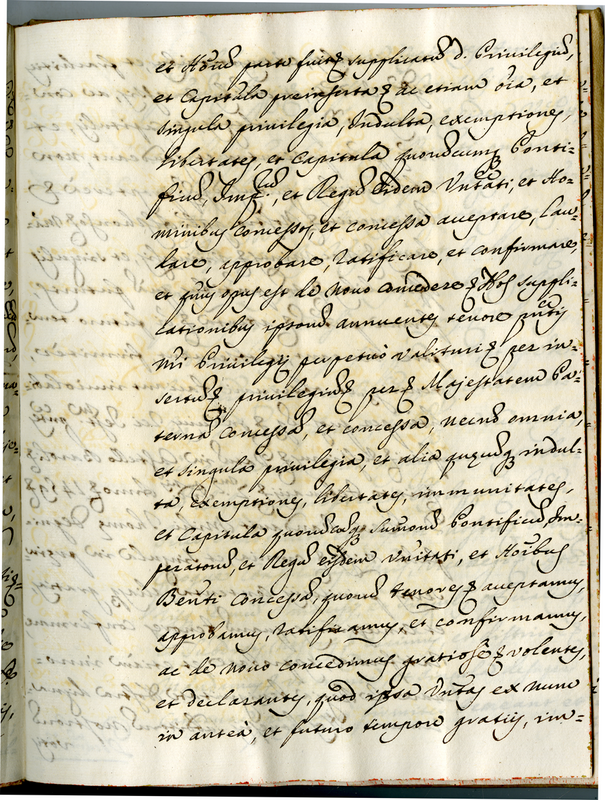 et Hoīum parte fuit supplicatum d. Privilegium,
et Capitula preinserta ac etiam oīa, et
singula privilegia, Indulta, exemptiones,
libertates et Capitula quorumcumq Ponti=
ficum, Imp., et Regum eidem Unītati, et Ho=
minibus concessos, et concessa acceptare, lau=
dare, approbare, ratificare, et confirmare,
et quis opus est de novo concedere Nos suppli=
cationibus ipsorum annuentes tenore pntis
nri Privilegij perpetuò valituri per in=
sertum privilegium per Majestatem Pa=
ternam concessam, et concessa, necnon omnia,
et singula privilegia, et alia quecumq indul=
ta, exemptiones, libertates, immunitates,
et Capitula quorumcumq Summorum Pontificum Im=
peratorum, et Regum eisdem Unitati, et Hoībus
Benti concessa, quorum tenores acceptamus,
approbamus, ratificamus, et confirmamus,
ac de novo concedimus gratiosè volentes,
et declarantes, quod ipsa Untas ex nunc
in anteà, et futuro tempore gratijs, im=